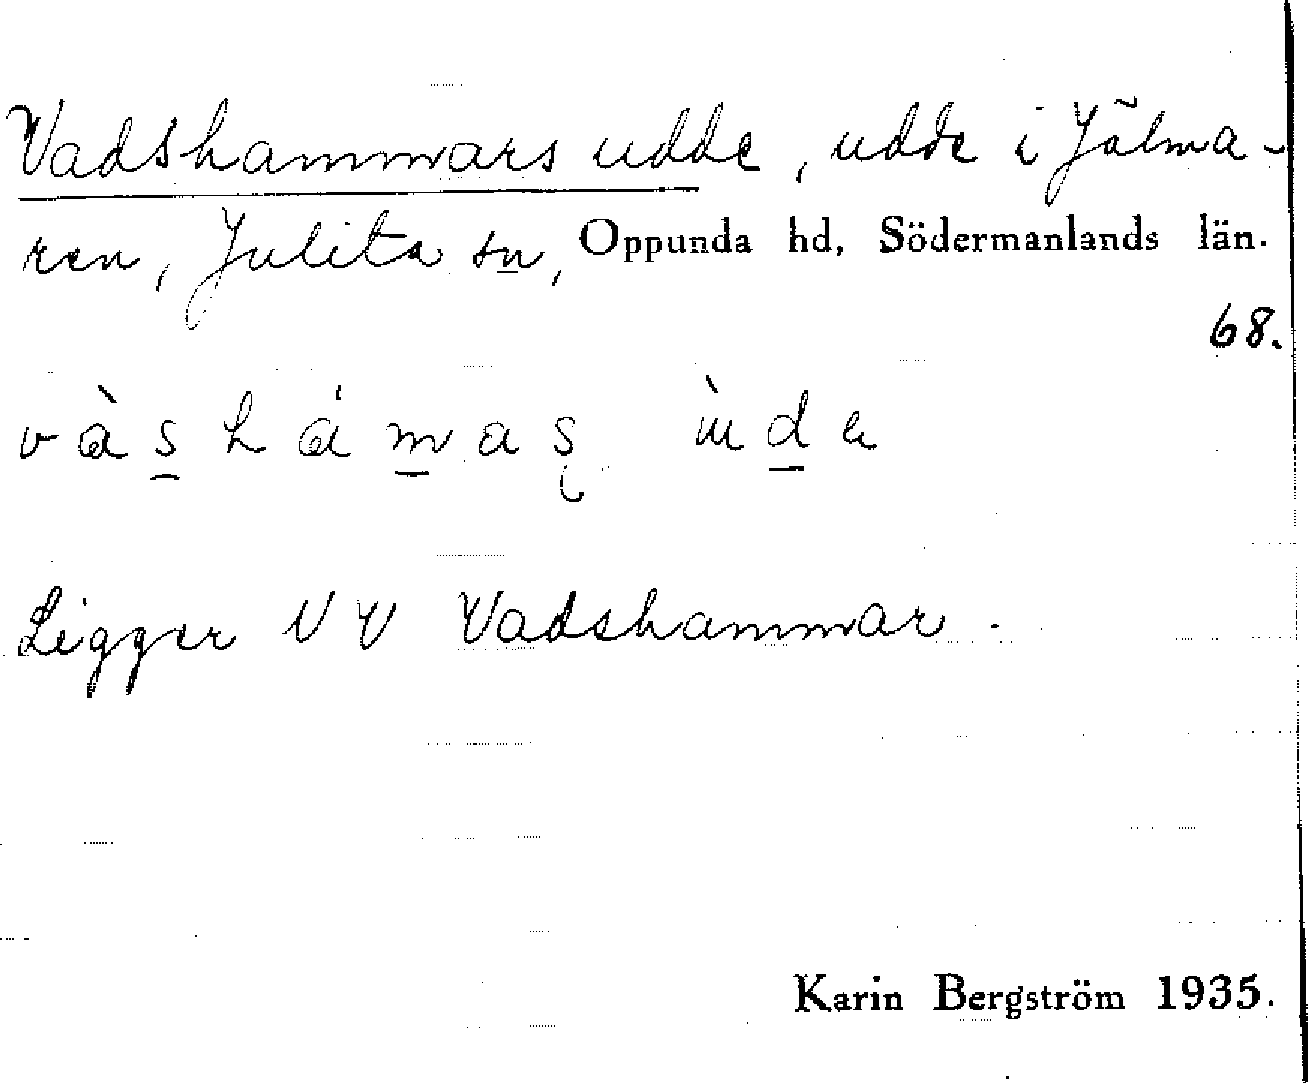 Vadshammars udde, udde i Jälma-
ren, Julita sn, Oppunda hd, Södermanlands län.
68.
vàshámaş ùde
Ligger NV Vadshammar.
Karin Bergström 1935.